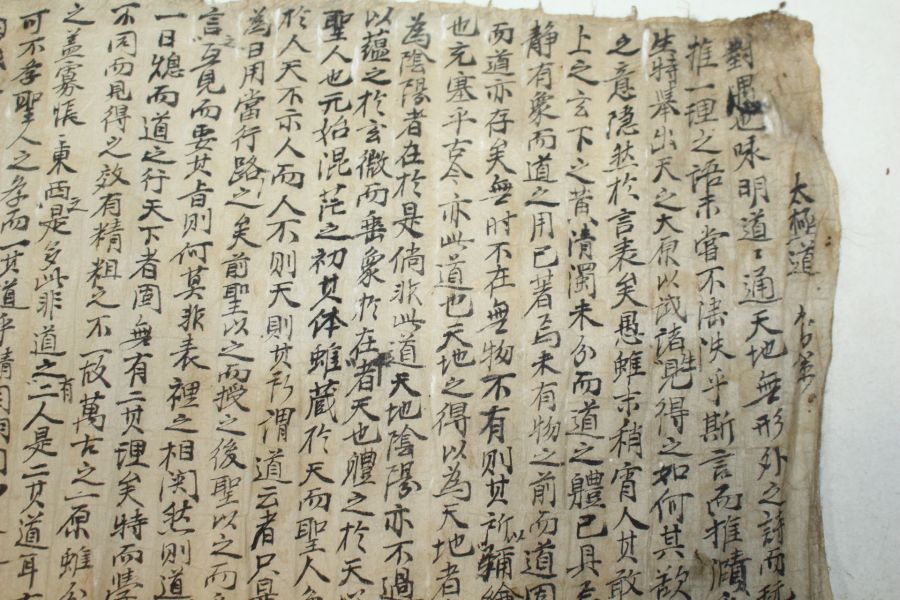 太極道
對愚也咏明道〻通天地無形外之詩而
推一理之語未嘗不
生特舉出天之大原以武諸生見得之如何其欲
之意隐然於言表矣愚雖末稍宵人其敢
上之玄下之黄清濁未分而道之體已具
静有象而道之用已著焉未有物之前而道固
而道亦存矣無时不在無物不有則其所以彌
也充塞乎古今亦此道也天地之得以為天地者
為陰陽者在於是倘非此道天地陰陽亦不過
以蘊之於玄微而垂象於在者天也體之於天
聖人也元始混茫之初其体雖蔵於天而聖人
於人天不示人而人不則天則其所謂道云者只是
為日用當行路之矣前聖以之而授之後聖以之而
言之互見而要其旨則何莫非表裡之相関然則道
一日熄而道之行天下者固無有二其理矣特而
不同而見得之效有精粗之不一故萬古之一原雖
之盖寡悵〻東西之是多此非道之有二人是二其道耳
可不孝聖人之孝而一其道乎